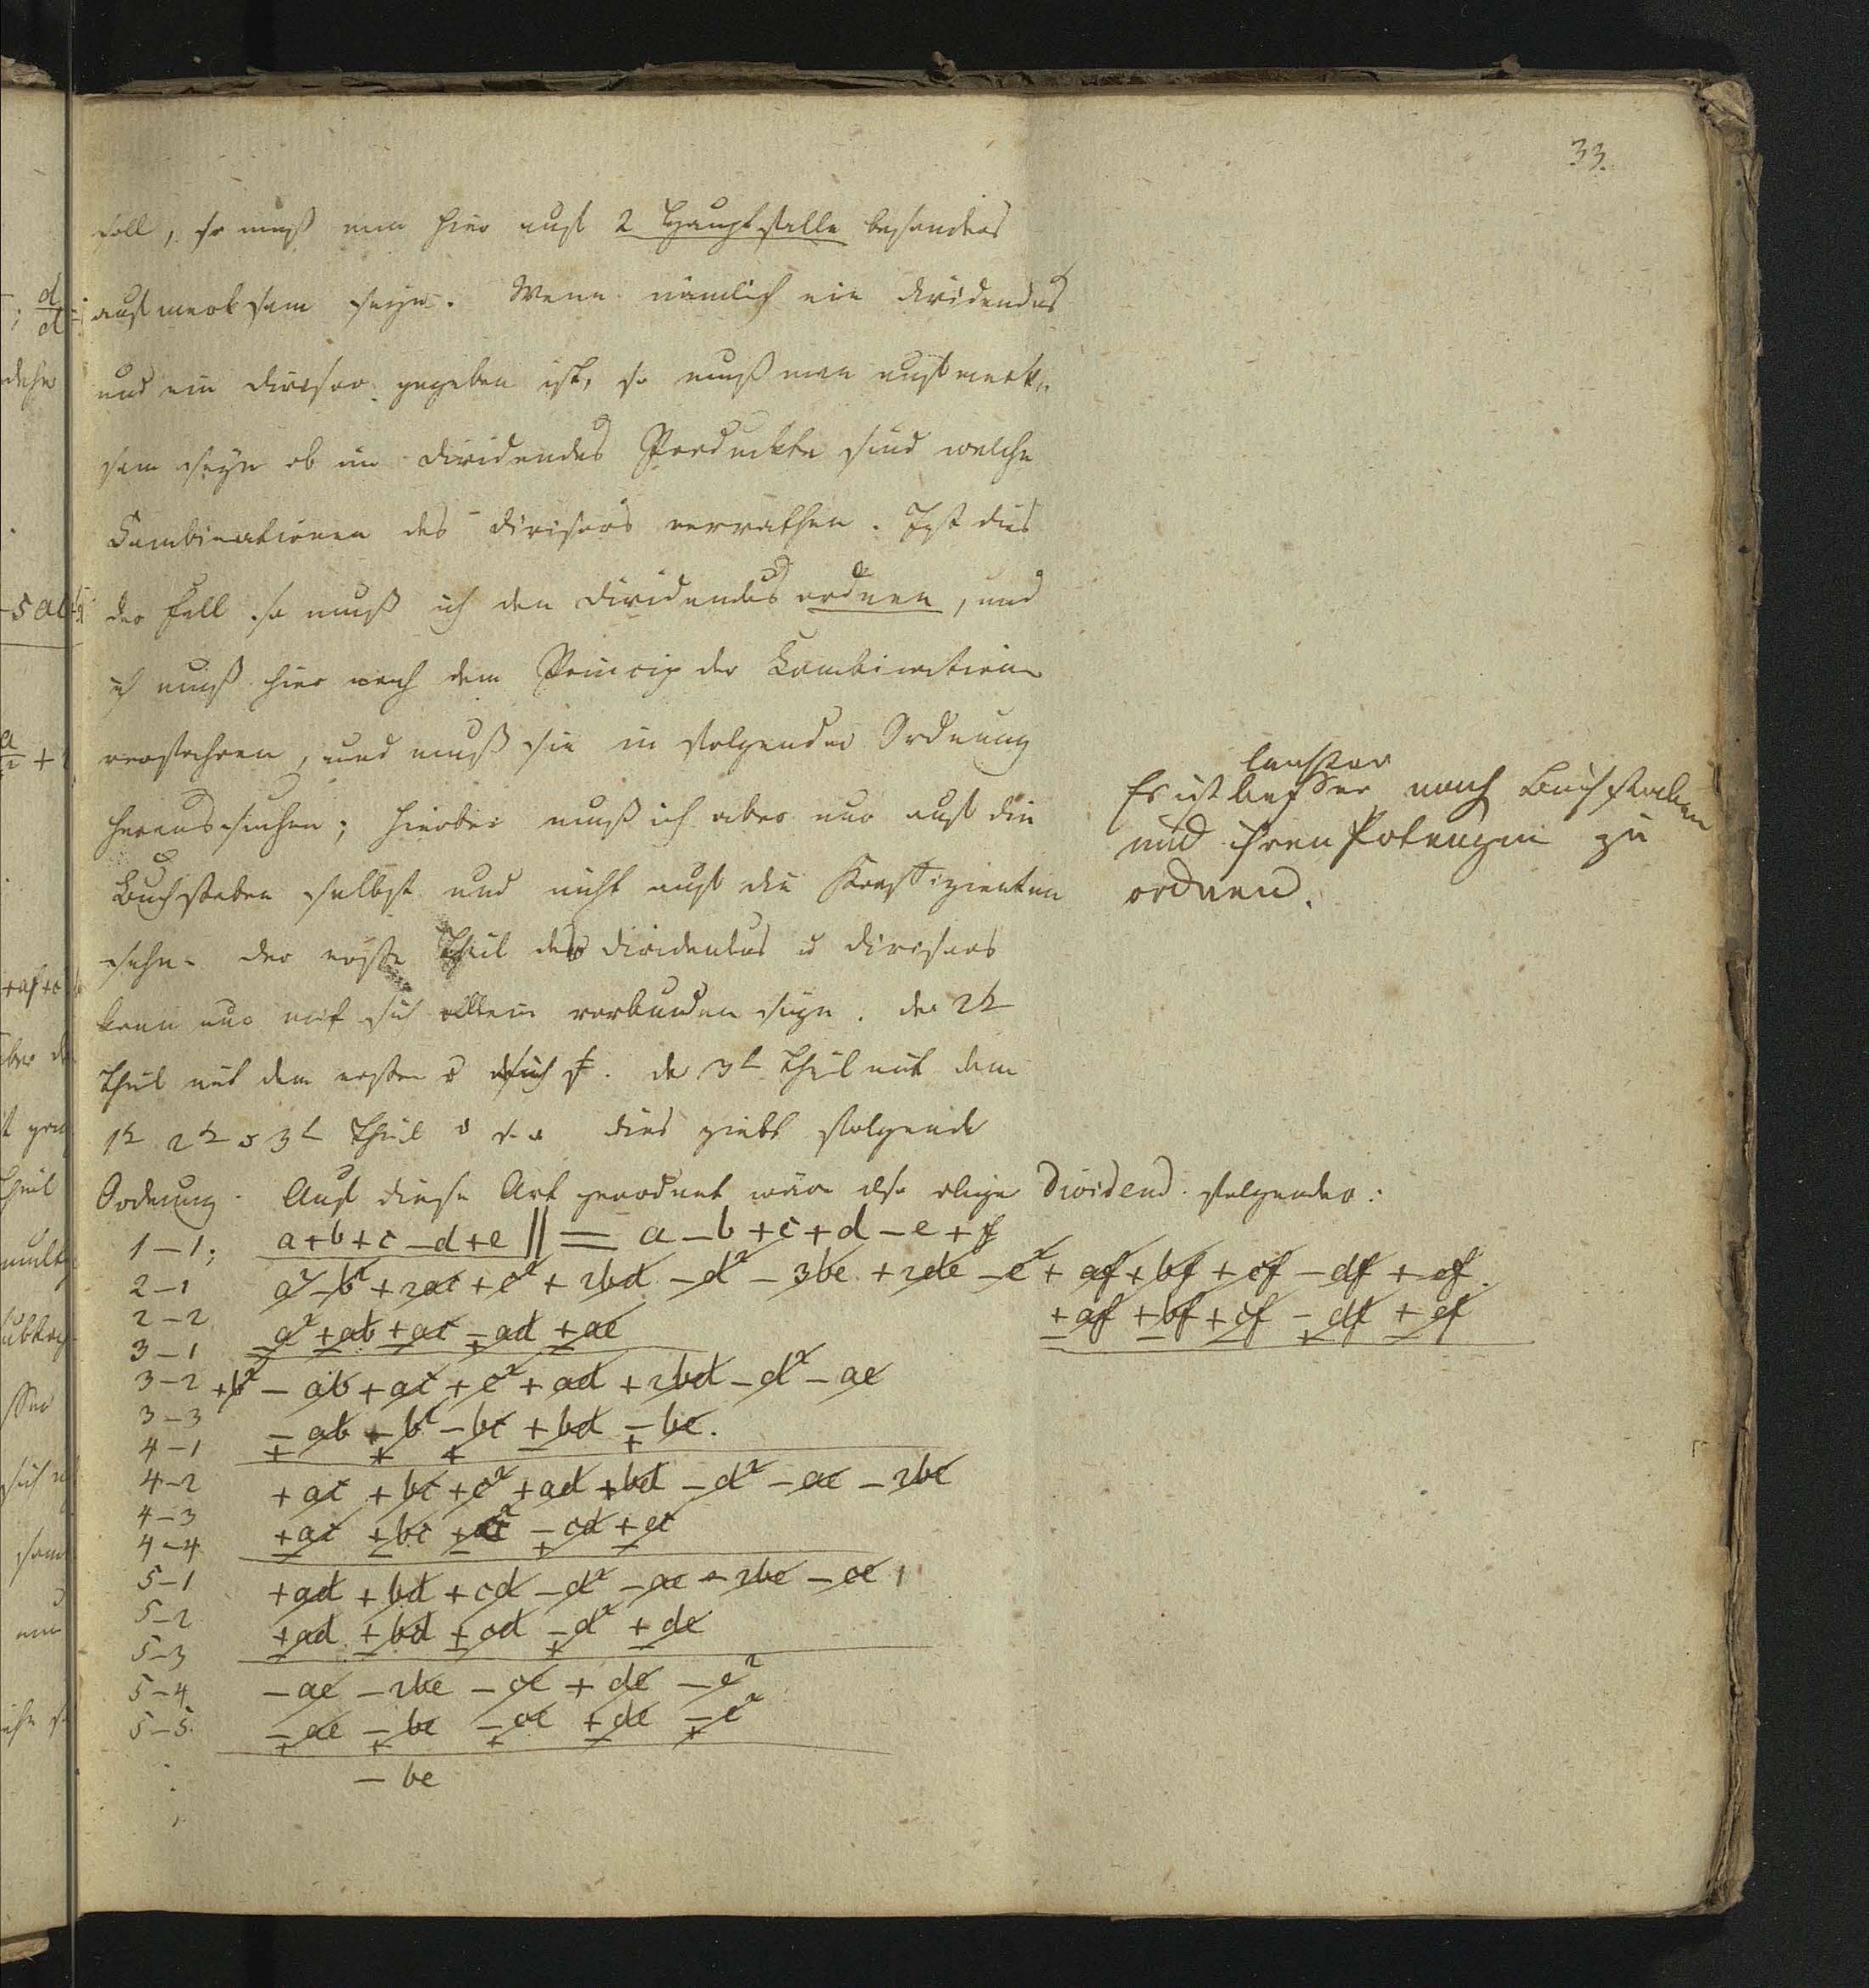 33.
soll, so muß man hier auf 2 Hauptfälle besonders
aufmerksam seyn. Wenn nämlich ein Dividendus
und ein Divisor gegeben ist, so muß man aufmerk„
sam seyn ob im Dividendus Produckte sind welche
Combinationen des Divisors verrathen. Ist dies
der Fall so muß ich den Dividendus ordnen, und
ich muß hier nach dem Princip der Combination
verfahren, und muß sie in folgender Ordnung
heraussuchen; hierbei muß ich aber nur auf die
Buchstaben selbst und nicht auf die Koeffizienten
sehn. Der erste Theil des Dividendus u Divisors
kann nur mit sich allein verbunden seyn. der 2t
Theil mit dem ersten u sich. der 3t Theil mit dem
1t 2t u 3t Theil dies giebt folgende
Ordnung. Auf diese Art geordnet wäre also obige Dividend. folgender:
leichter
Es ist besser nach Buchstaben
und ihren Potenzen zu
ordnen.
1–1; a+b+c–d+e || = a–b+c+d–e+f
2–1 a²–b²+2ac+c²+2bd–d²–3be+2de–e²+af+bf+cf–df+ef.
2–2 +af+bf+cf–df+ef
3–1 a²+ab+ac–ad+ae
3–2 +b²–ab+ac+c²+ad+2bd–d²–ae
3–3
4–1 –ab–b²–bc+bd–be.
4–2 +ac+bc+c²+ad+bd–d²–ae–2be
4–3
4–4 +ac+bc+c²–cd+ec
5–1 +ad+bd+cd–d²–ae–2be–ce
5–2 +ad+bd+cd–d²+de
5–3
5–4 –ae–2be–ce+de–e²
5–5. –ae–be–ce+de–e²
–be